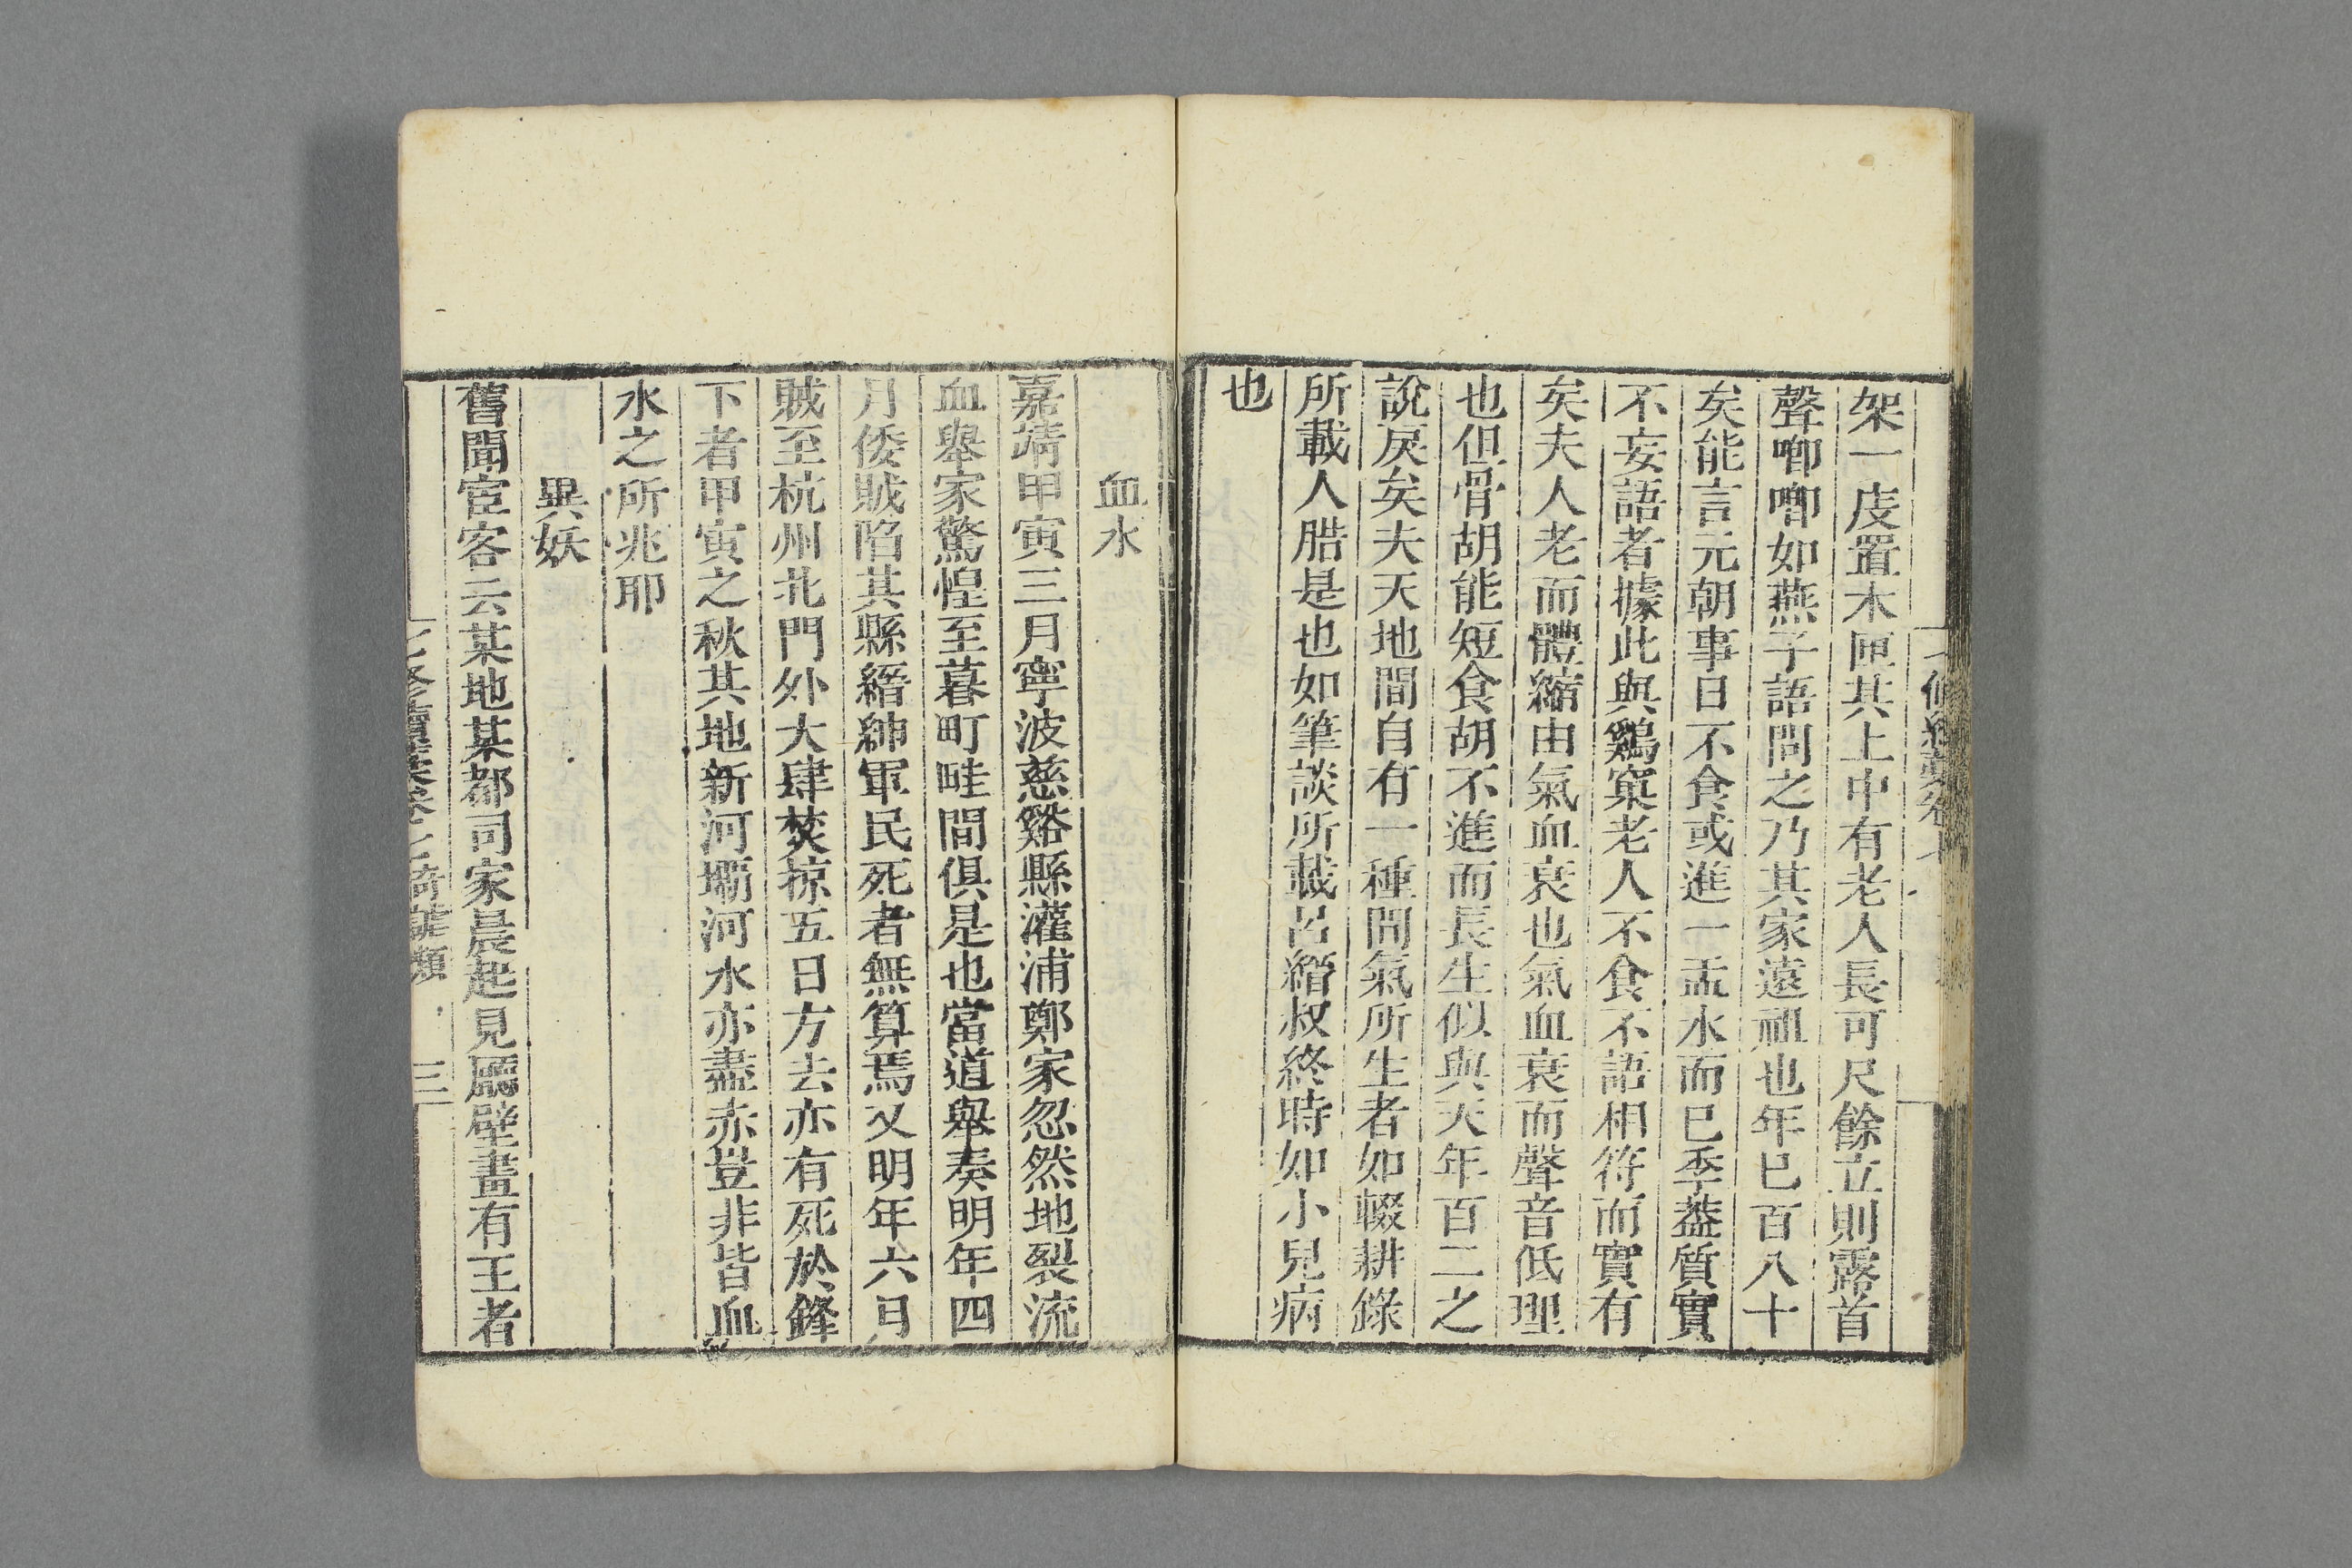 架一庋置木匣其上中有老人長可尺餘立則露首
聲喞喞如燕子語問之乃其家遠祖也年已百八十
矣能言元朝事日不食或進一盂水而已季葢質實
不妄語者據此與鷄窠老人不食不語相符而實有
矣夫人老而體縮由氣血衰也氣血衰而聲音低理
也但骨胡能短食胡不進而長生似與天年百二之
說戾矣夫天地間自有一種間氣所生者如輟耕錄
所載人腊是也如筆談所載呂縉叔終時如小兒病
也
血水
嘉靖甲寅三月寧波慈谿縣灌浦鄭家忽然地裂流
血舉家驚惶至暮町畦間俱是也當道舉奏明年四
月倭賊陷其縣縉紳軍民死者無算焉又明年六月
賊至杭州北門外大肆焚掠五日方去亦有死於鋒
下者甲寅之秋其地新河壩河水亦盡赤豈非皆血
水之所兆耶
異妖
舊聞宦客云某地某都司家晨起見廳壁畫有王者
七修續藁卷七奇謔類 三